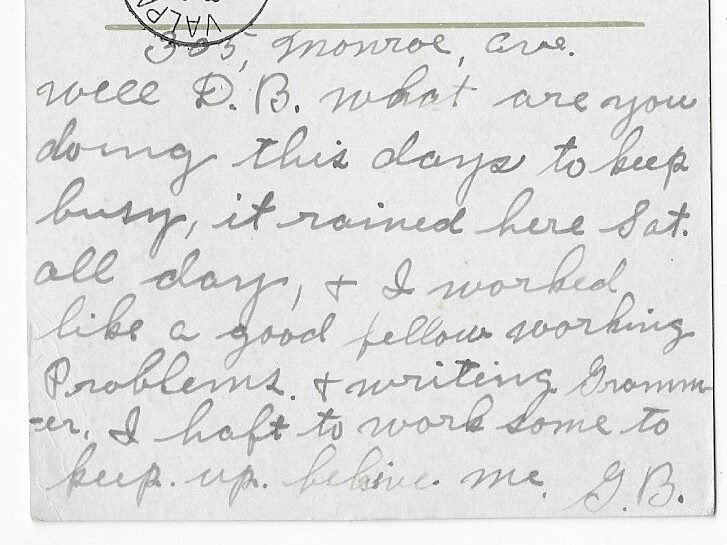 VALPA
305, Monroe, Ave.
well D. B. what are you
doing this days to keep
busy, it rained here Sat.
all day, & I worked
like a good fellow working
Problems. & writing Gramm-
-er. I haft to work some to
keep. up. belive. me. G. B.